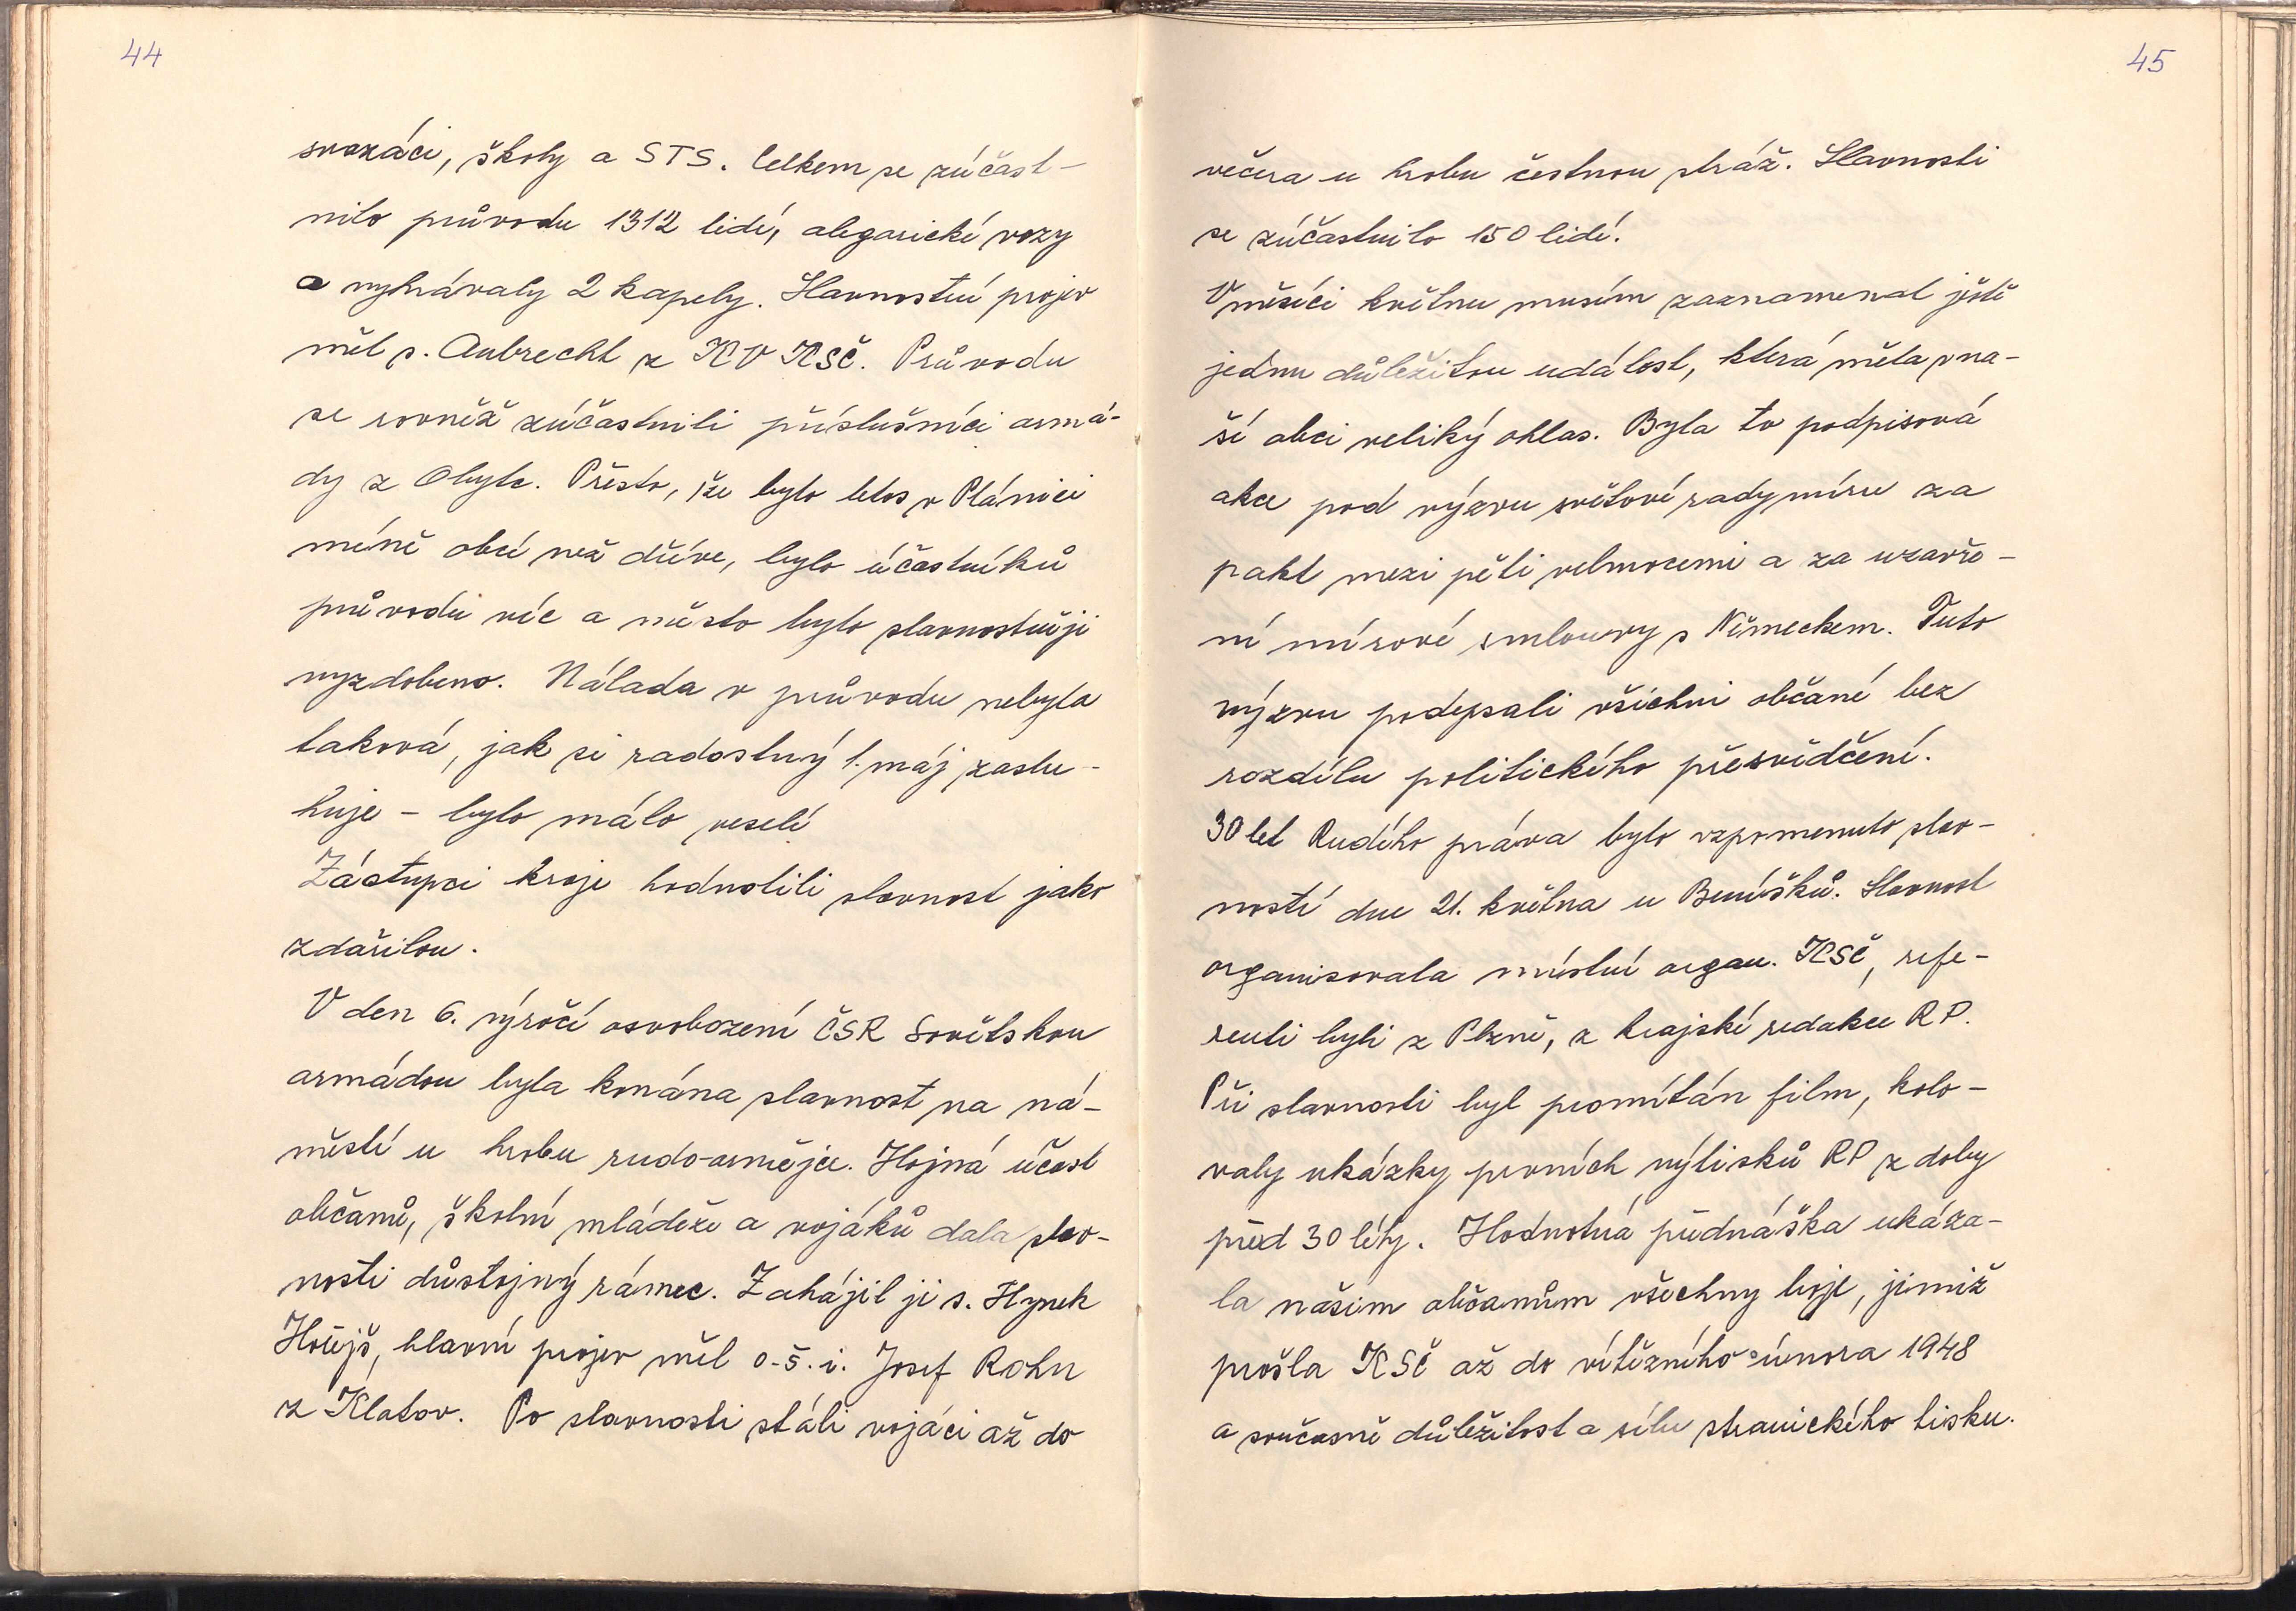 44
svazáci, školy a STS. Celkem se zúčast-
nilo průvodu 1312 lidí, alegorické vozy
a vyhrávaly 2 kapely. Slavnostní projev
měl s. Aubrecht z KV KSČ. Průvodu
se rovněž zúčastnili příslušníci armá-
dy z Obytc. Přesto, že bylo letos v Plánici
méně obcí než dříve, bylo účastníků
průvodu víc a město bylo slavnostněji
vyzdobeno. Nálada v průvodu nebyla
taková, jak si radostný 1. máj zaslu-
huje - bylo málo veselí
Zástupci kraje hodnotili slavnost jako
zdařilou.
V den 6. výročí osvobození ČSR Sovětskou
armádou byla konána slavnost na ná-
městí u hrobu rudo-armějce. Hojná účast
občanů, školní mládeže a vojáků dala slav-
nosti důstojný rámec. Zahájil ji s. Hynek
Hořejš, hlavní projev měl o-š. i. Josef Rohn
z Klatov. Po slavnosti stáli vojáci až do
45
večera u hrobu čestnou stráž. Slavnosti
se zúčastnilo 150 lidí.
V měsíci květnu musím zaznamenat ještě
jednu důležitou událost, která měla v na-
ší obci veliký ohlas. Byla to podpisová
akce pod výzvu světové rady míru za
pakt mezi pěti velmocemi a za uzavře-
ní mírové smlouvy s Německem. Tuto
výzvu podepsali všichni občané bez
rozdílu politického přesvědčení.
30 let Rudého práva bylo vzpomenuto slav-
ností dne 21. května u Beníšků. Slavnost
organisovala místní organ. KSČ, refe-
renti byli z Plzně, z krajské redakce RP.
Při slavnosti byl promítán film, kolo-
valy ukázky prvních výtisků RP z doby
před 30 léty. Hodnotná přednáška ukáza-
la našim občanům všechny boje, jimiž
prošla KSČ až do vítězného února 1948
a současně důležitost a sílu stranického tisku.